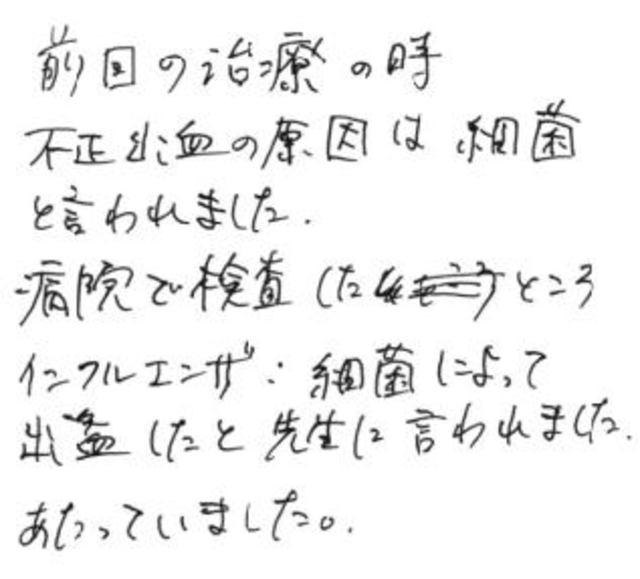 前回の治療の時
不正出血の原因は細菌
と言われました.
病院で検査したところ
インフルエンザ:細菌によって
出血したと先生に言われました.
あたっていました。.